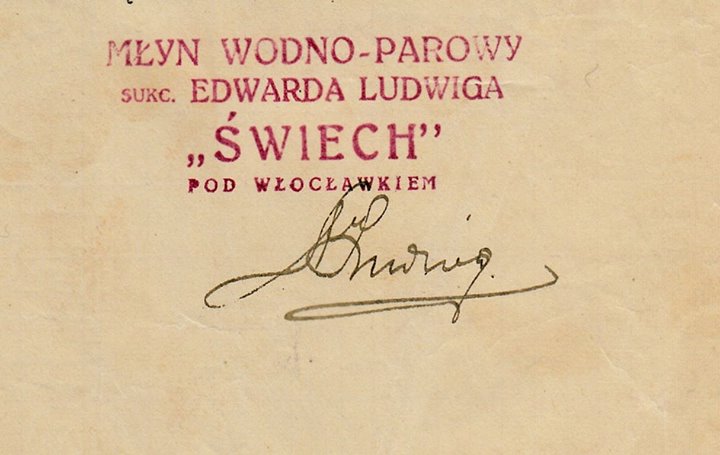 MŁYN WODNO-PAROWY
SUKC. EDWARDA LUDWIGA
„ŚWIECH”
POD WŁOCŁAWKIEM
Ludwig